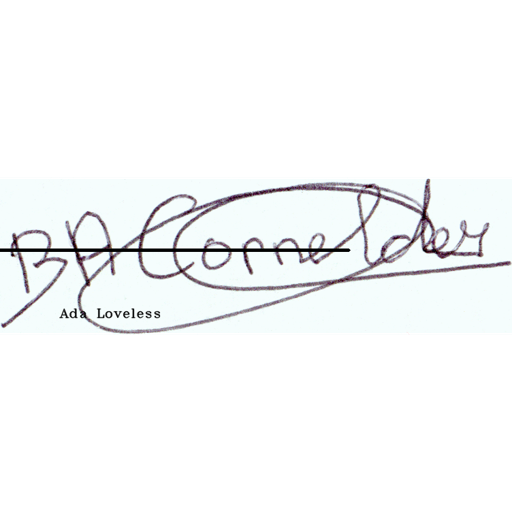 BA Cornelder
Ada Loveless